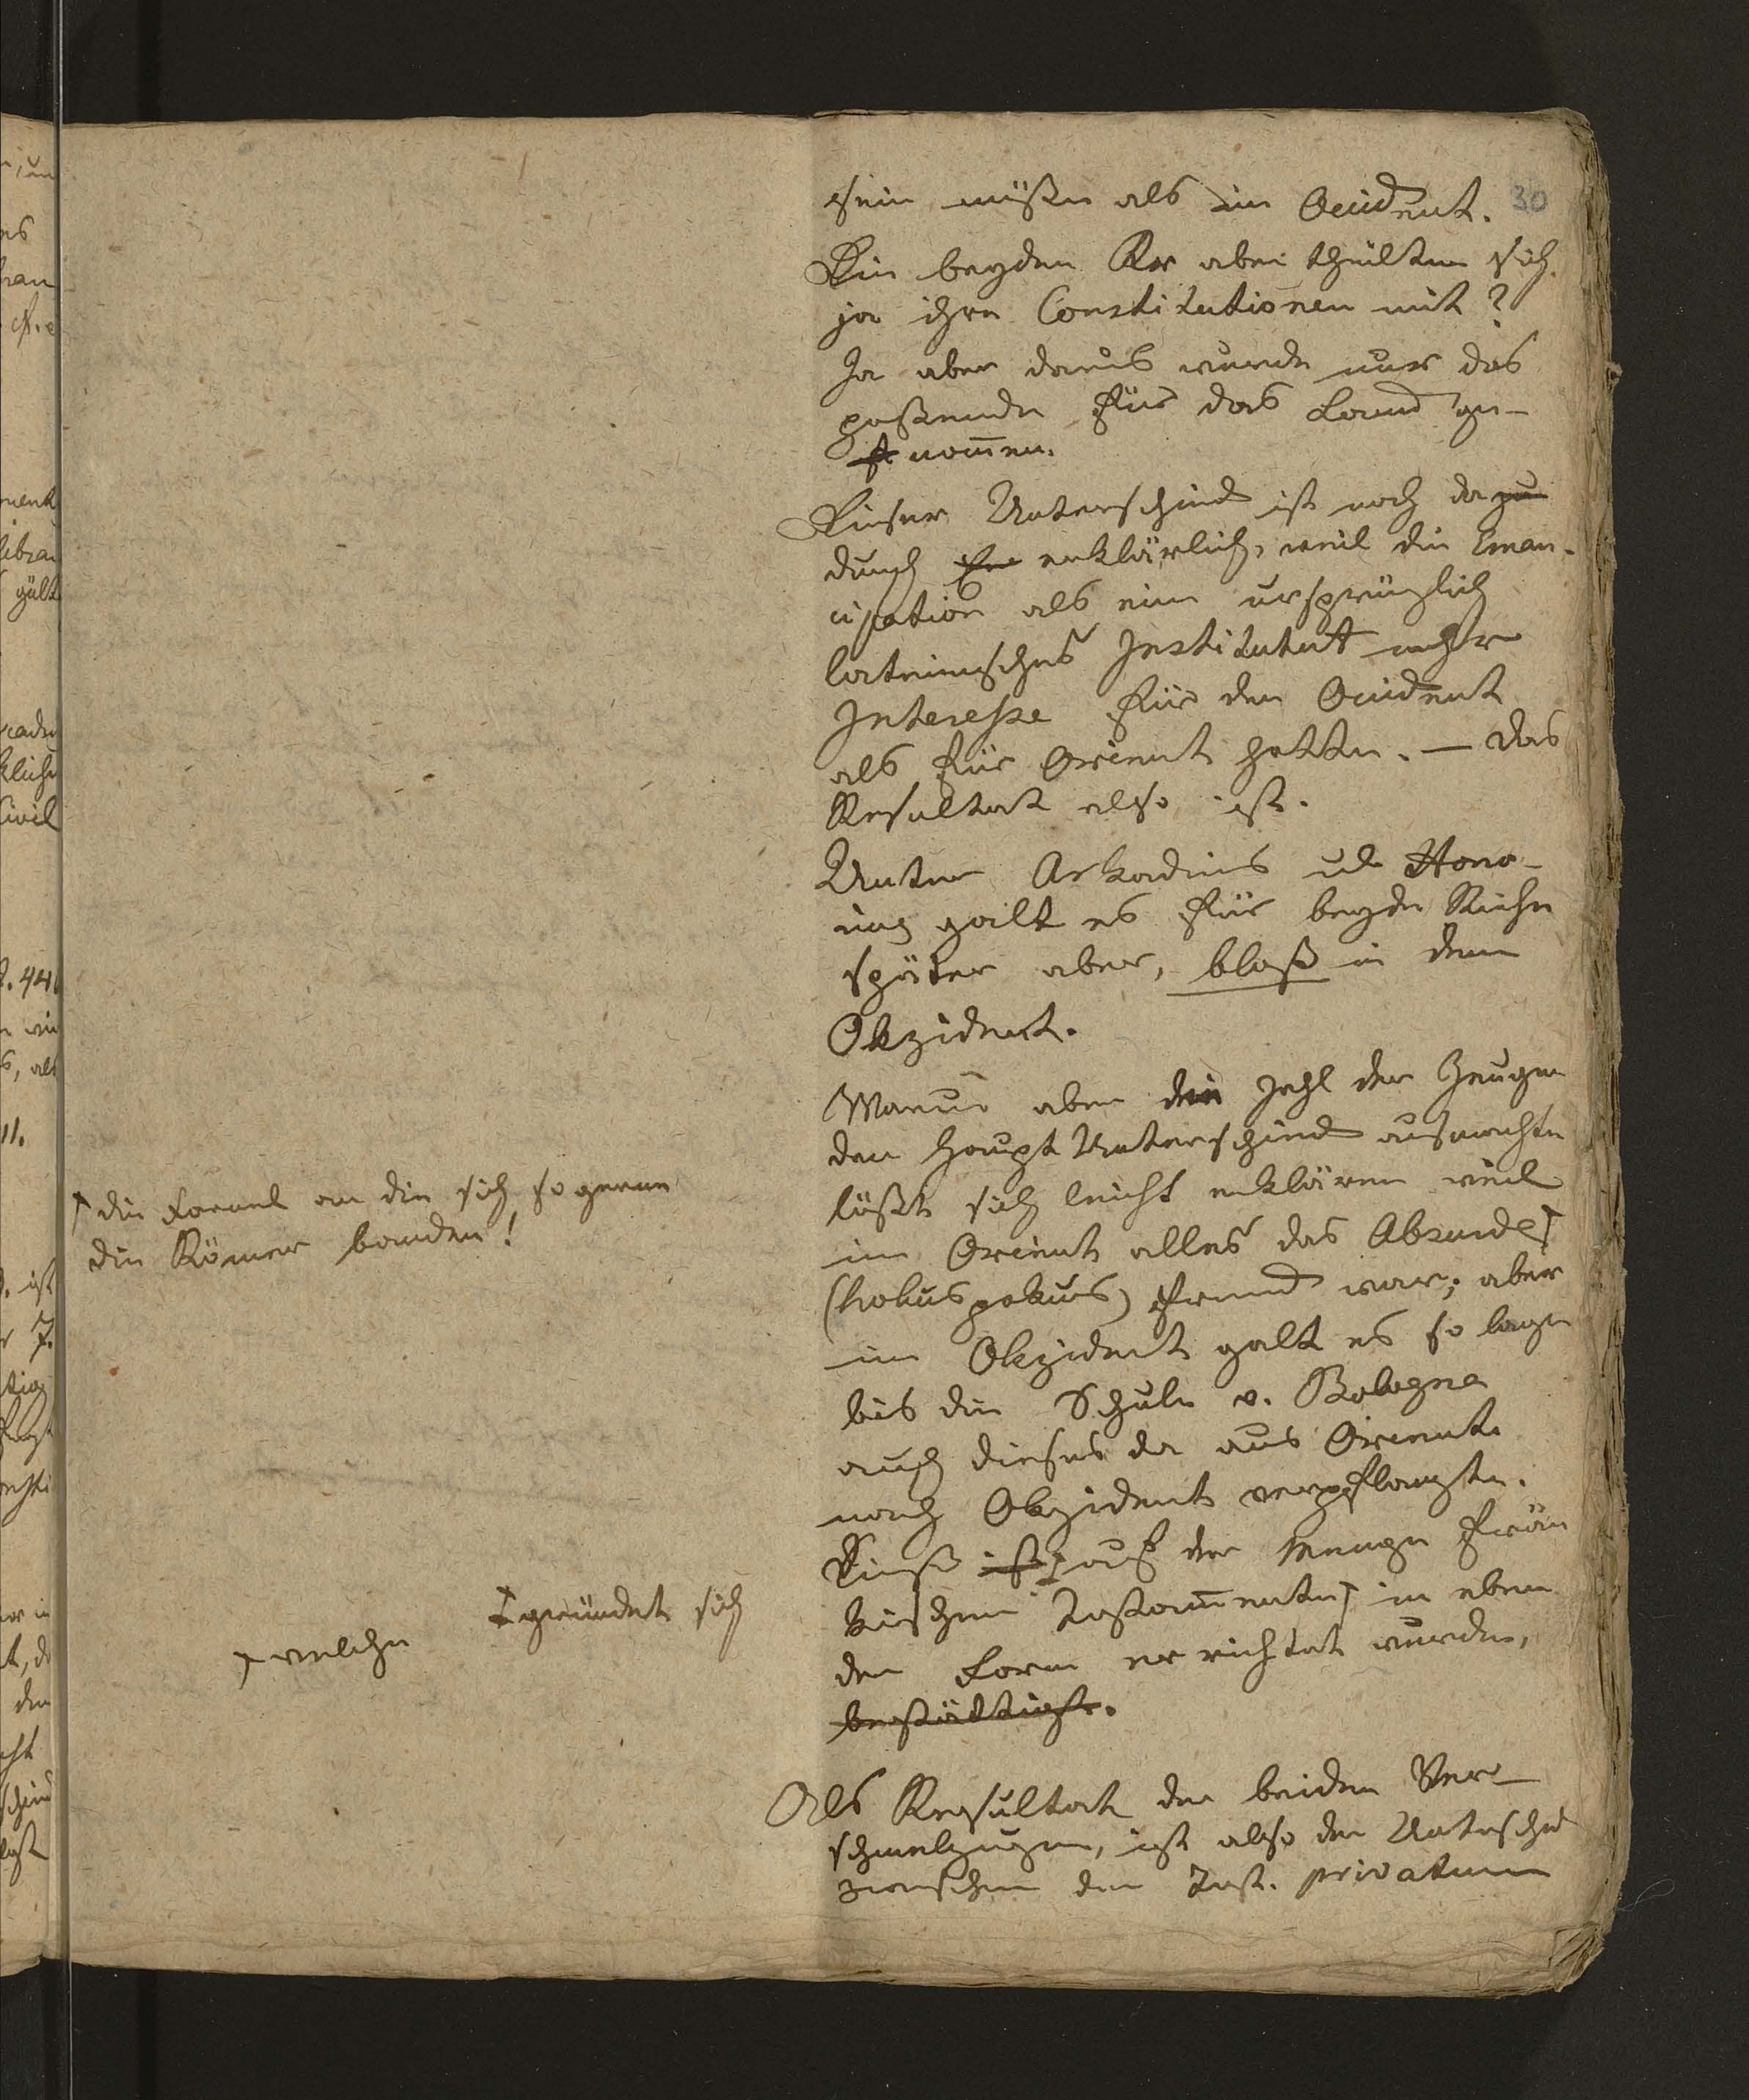 30
sein müßen als im Occident.
Die beyden Kr aber theilten sich
ja ihre Constitutionen mit?
Ja aber daraus wurde nur das
paßende für das Land ge-
nom̅en.
Dieser Unterschied ist noch da
durch erklärlich, weil die Eman-
cipation als eine ursprünglich
lateinisches Institutut mehr
Interesse für den Occident
als für Orient hatte. — Das
Resultat also ist.
Unter Arkadius u Hono-
rius galt es für beyde Reiche
später aber, bloß in dem
Okzident.
Warum aber die Zahl der Zeugen
den Haupt Unterschied ausmachte
läßt sich leicht erklären weil
im Orient alles das Absurde
(hokuspokus) fremd war; aber
im Okzident galt es so lange
bis die Schule v. Bologna
auch dieses da aus Orient
nach Okzident verpflanzte.
Dieß ist auf der Menge frän
kischen Testam̅ente in eben
der Form errichtet wurden,
bestättigt.
Als Resultat der beiden Ver-
schmelzungen, ist also der Unterschied
zwischen den Test. privatum
die Formel an die sich so gerne
die Römer banden!
gründet sich
welche